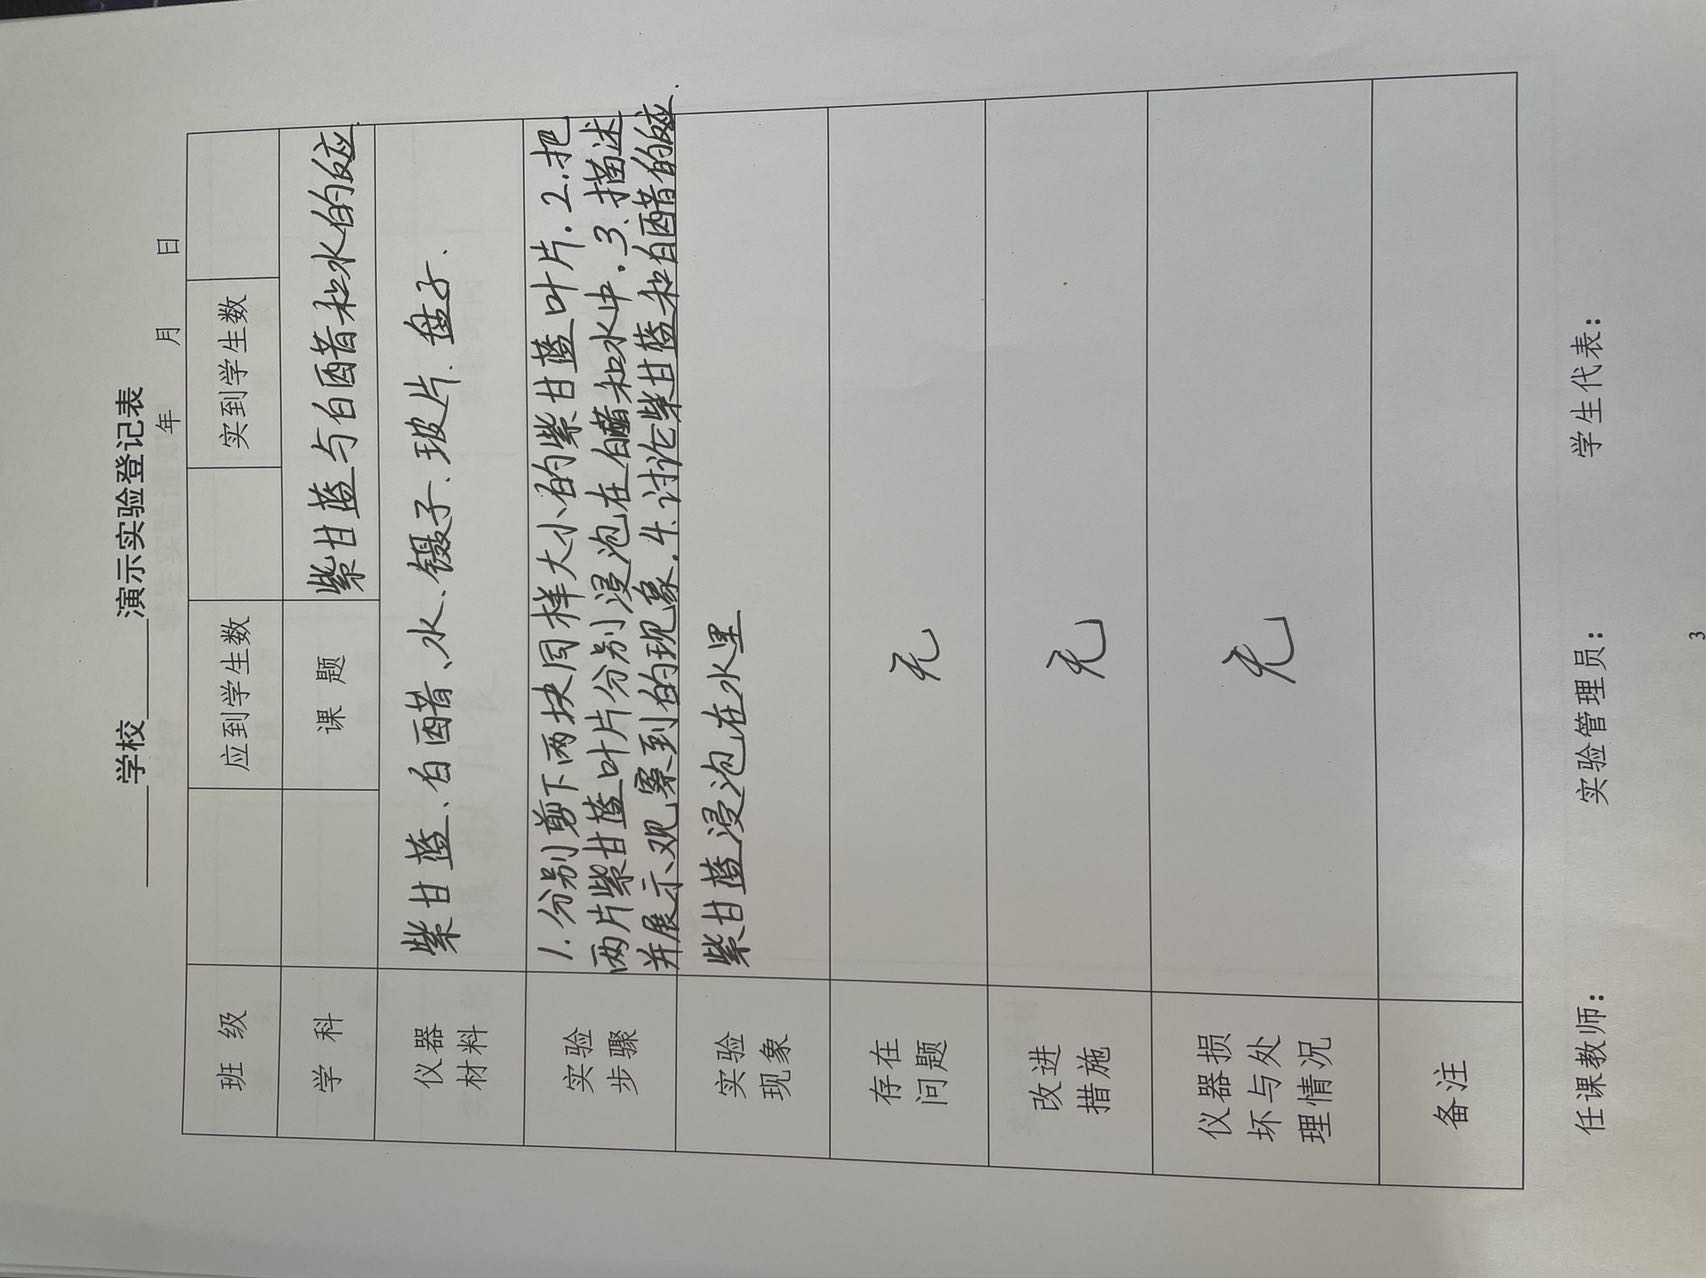 学校 演示实验登记表
年 月 日
班级 应到学生数 实到学生数
学科 课题 紫甘蓝与白醋和水的反应
仪器材料 紫甘蓝、白醋、水、镊子、玻片、盘子、
实验步骤 1.分别剪下两块同样大小的紫甘蓝叶片.2.把
两片紫甘蓝叶片分别浸泡在白醋和水中.3.描述
并展示观察到的现象.4.讨论紫甘蓝和白醋的反应.
实验现象 紫甘蓝浸泡在水里
存在问题 无
改进措施 无
仪器损坏与处理情况 无
备注
任课教师： 实验管理员： 学生代表：
3